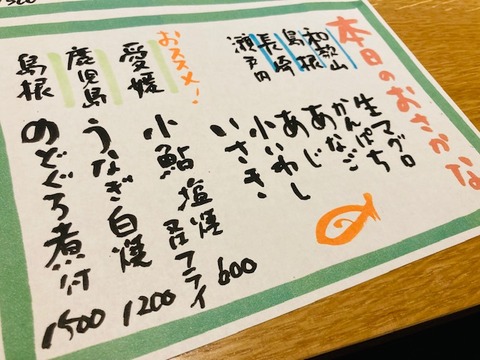 本日のおさかな
和歌山
島根
長崎
瀬戸内
生マグロ
かんぱち
あなご
あじ
小いわし
いさき
おススメ!
愛媛 小鮎 塩焼 orフライ 600
鹿児島 うなぎ白焼 1200
島根 のどぐろ煮付 1500